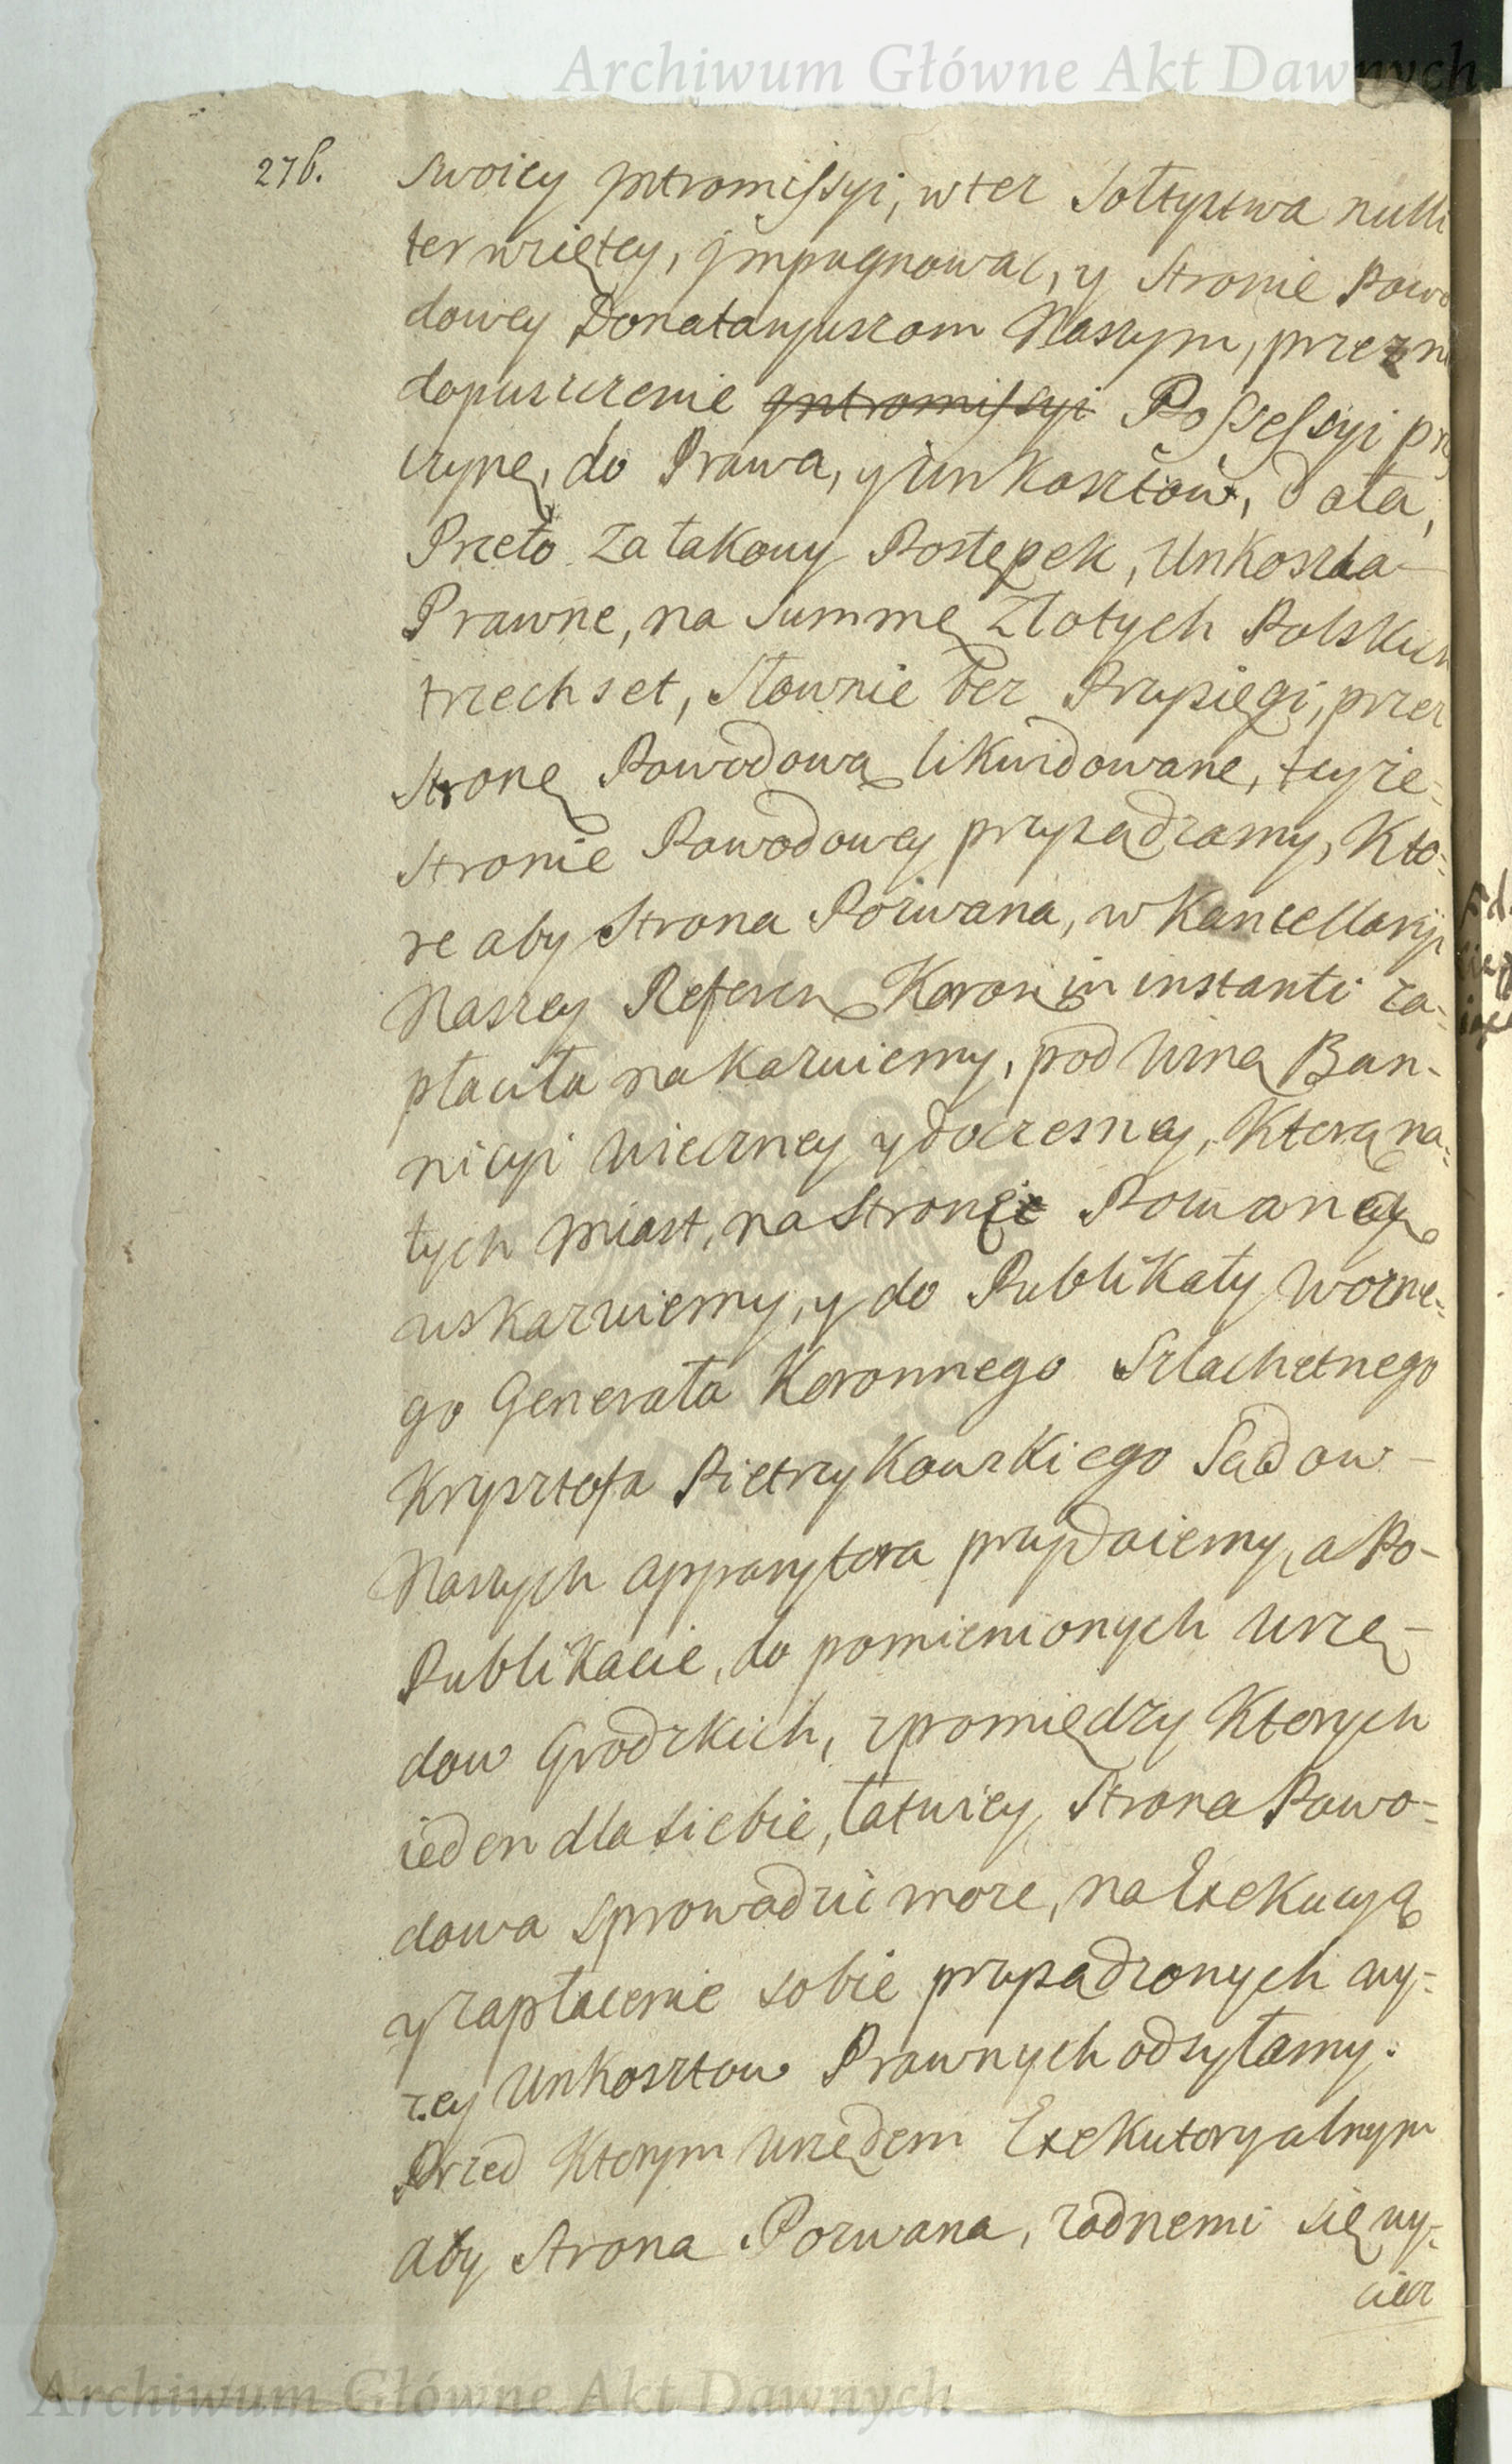 Archiwum Główne Akt Dawnych
276.
Swoiey Jntromissyi, wtez Sołtystwa nulli
ter wziętey, Jmpugnowac, y Stronie Powo
dowey Donataryuszom Naszym, przez ni
dopuszczenie Jntromissyi Possessyi prz
czynę, do Prawa, y Unkosztow, dała,
Przeto Za takowy Postępek, Unkoszta
Prawne, na Summę Złotych Polskich
trzechset, Słownie bez Przysięgi, przez
Stronę Powodową likwidowane, teyże=
Stronie Powodowey przysądzamy, Kto=
re aby Strona Pozwana, w Kancellaryi
Naszey Referen Koron in instanti za=
płaciła nakazuiemy, pod Winą Ban-
nicyi Wieczney y doczesney, Ktorą na=
tych miast, na Stronę Pozwaną
wskazuiemy, y do Publikaty Wozne=
go Generała Koronnego Szlachetnego
Krysztofa Pietrzykowskiego Sądow-
Naszych apparytora przydaiemy, a Po-
Publikacie, do pomienionych Urzę-
dow Grodzkich, zpomiędzy Ktorych
ieden dla siebie, łatwiey Strona Powo=
dowa sprowadzic moze, na Exekucyą
y zapłacenie sobie przysądzonych wy=
zey Unkosztow Prawnych odsyłamy.
Przed Ktorym Urzędem Exekutoryalnym
aby Strona Pozwana, zadnemi się wy=
ciecz
Archiwum Główne Akt Dawnych